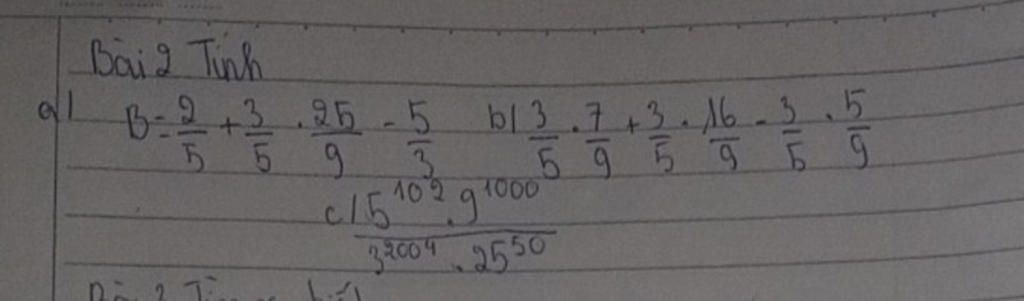 Bài 2 Tính
a/ B = 2/5 + 3/5 . 25/9 - 5/3 b/ 3/5 . 7/9 + 3/5 . 16/9 - 3/5 . 5/9
c/ 5^102 . 9^1000 / 3^2004 . 25^50